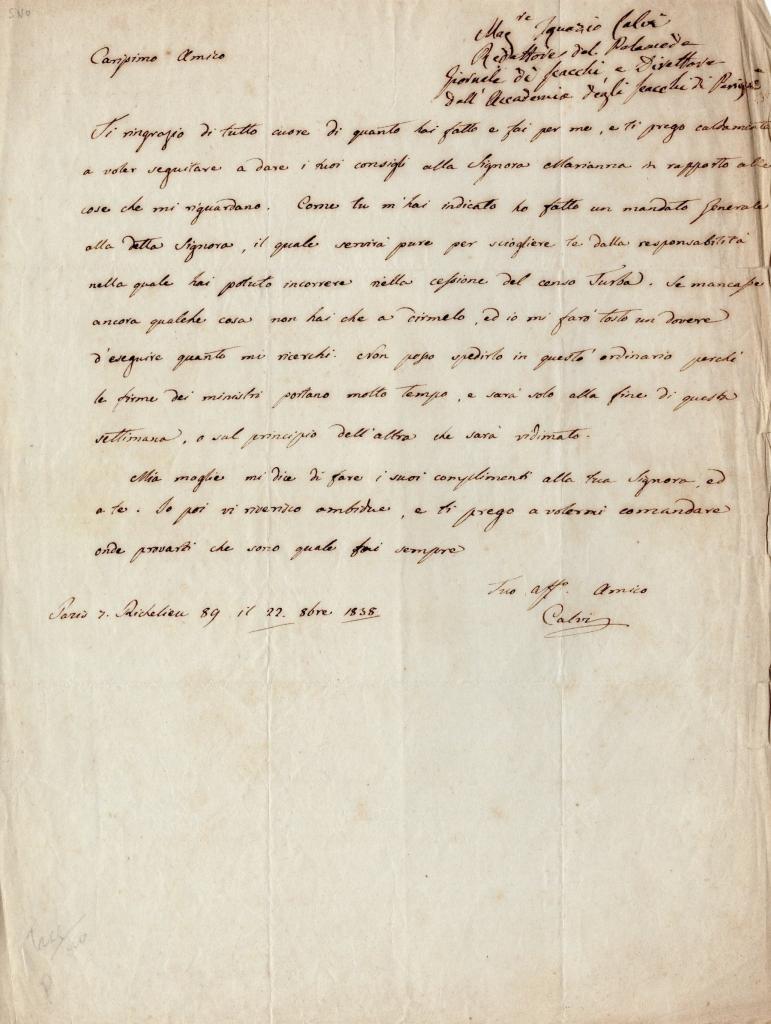 S.N.O
Mag.re Ignazio Calvi
Redattore del Palamede
Giornale di Scacchi, e Direttore
dell'Accademia degli Scacchi di Parigi
Carissimo Amico
Ti ringrazio di tutto cuore di quanto hai fatto e fai per me, e ti prego caldamente
a voler seguitare a dare i tuoi consigli alla Signora Marianna in rapporto alle
cose che mi riguardano. Come tu m'hai indicato ho fatto un mandato generale
alla detta Signora, il quale servirà pure per sciogliere te dalla responsabilità
nella quale hai potuto incorrere nella cessione del censo Turba. Se mancasse
ancora qualche cosa non hai che a dirmelo, ed io mi farò tosto un dovere
d'eseguire quanto mi ricerchi. Non posso spedirlo in questo ordinario perchè
le firme dei ministri portano molto tempo, e sarà solo alla fine di questa
settimana, o sul principio dell'altra che sarà vidimato.
Mia moglie mi dice di fare i suoi complimenti alla tua Signora, ed
a te. Io poi vi riverisco ambidue, e ti prego a volermi comandare
onde provarti che sono quale fui sempre
Tuo aff.o Amico
Calvi
Paris r. Richelieu 89 il 22. 8bre 1838